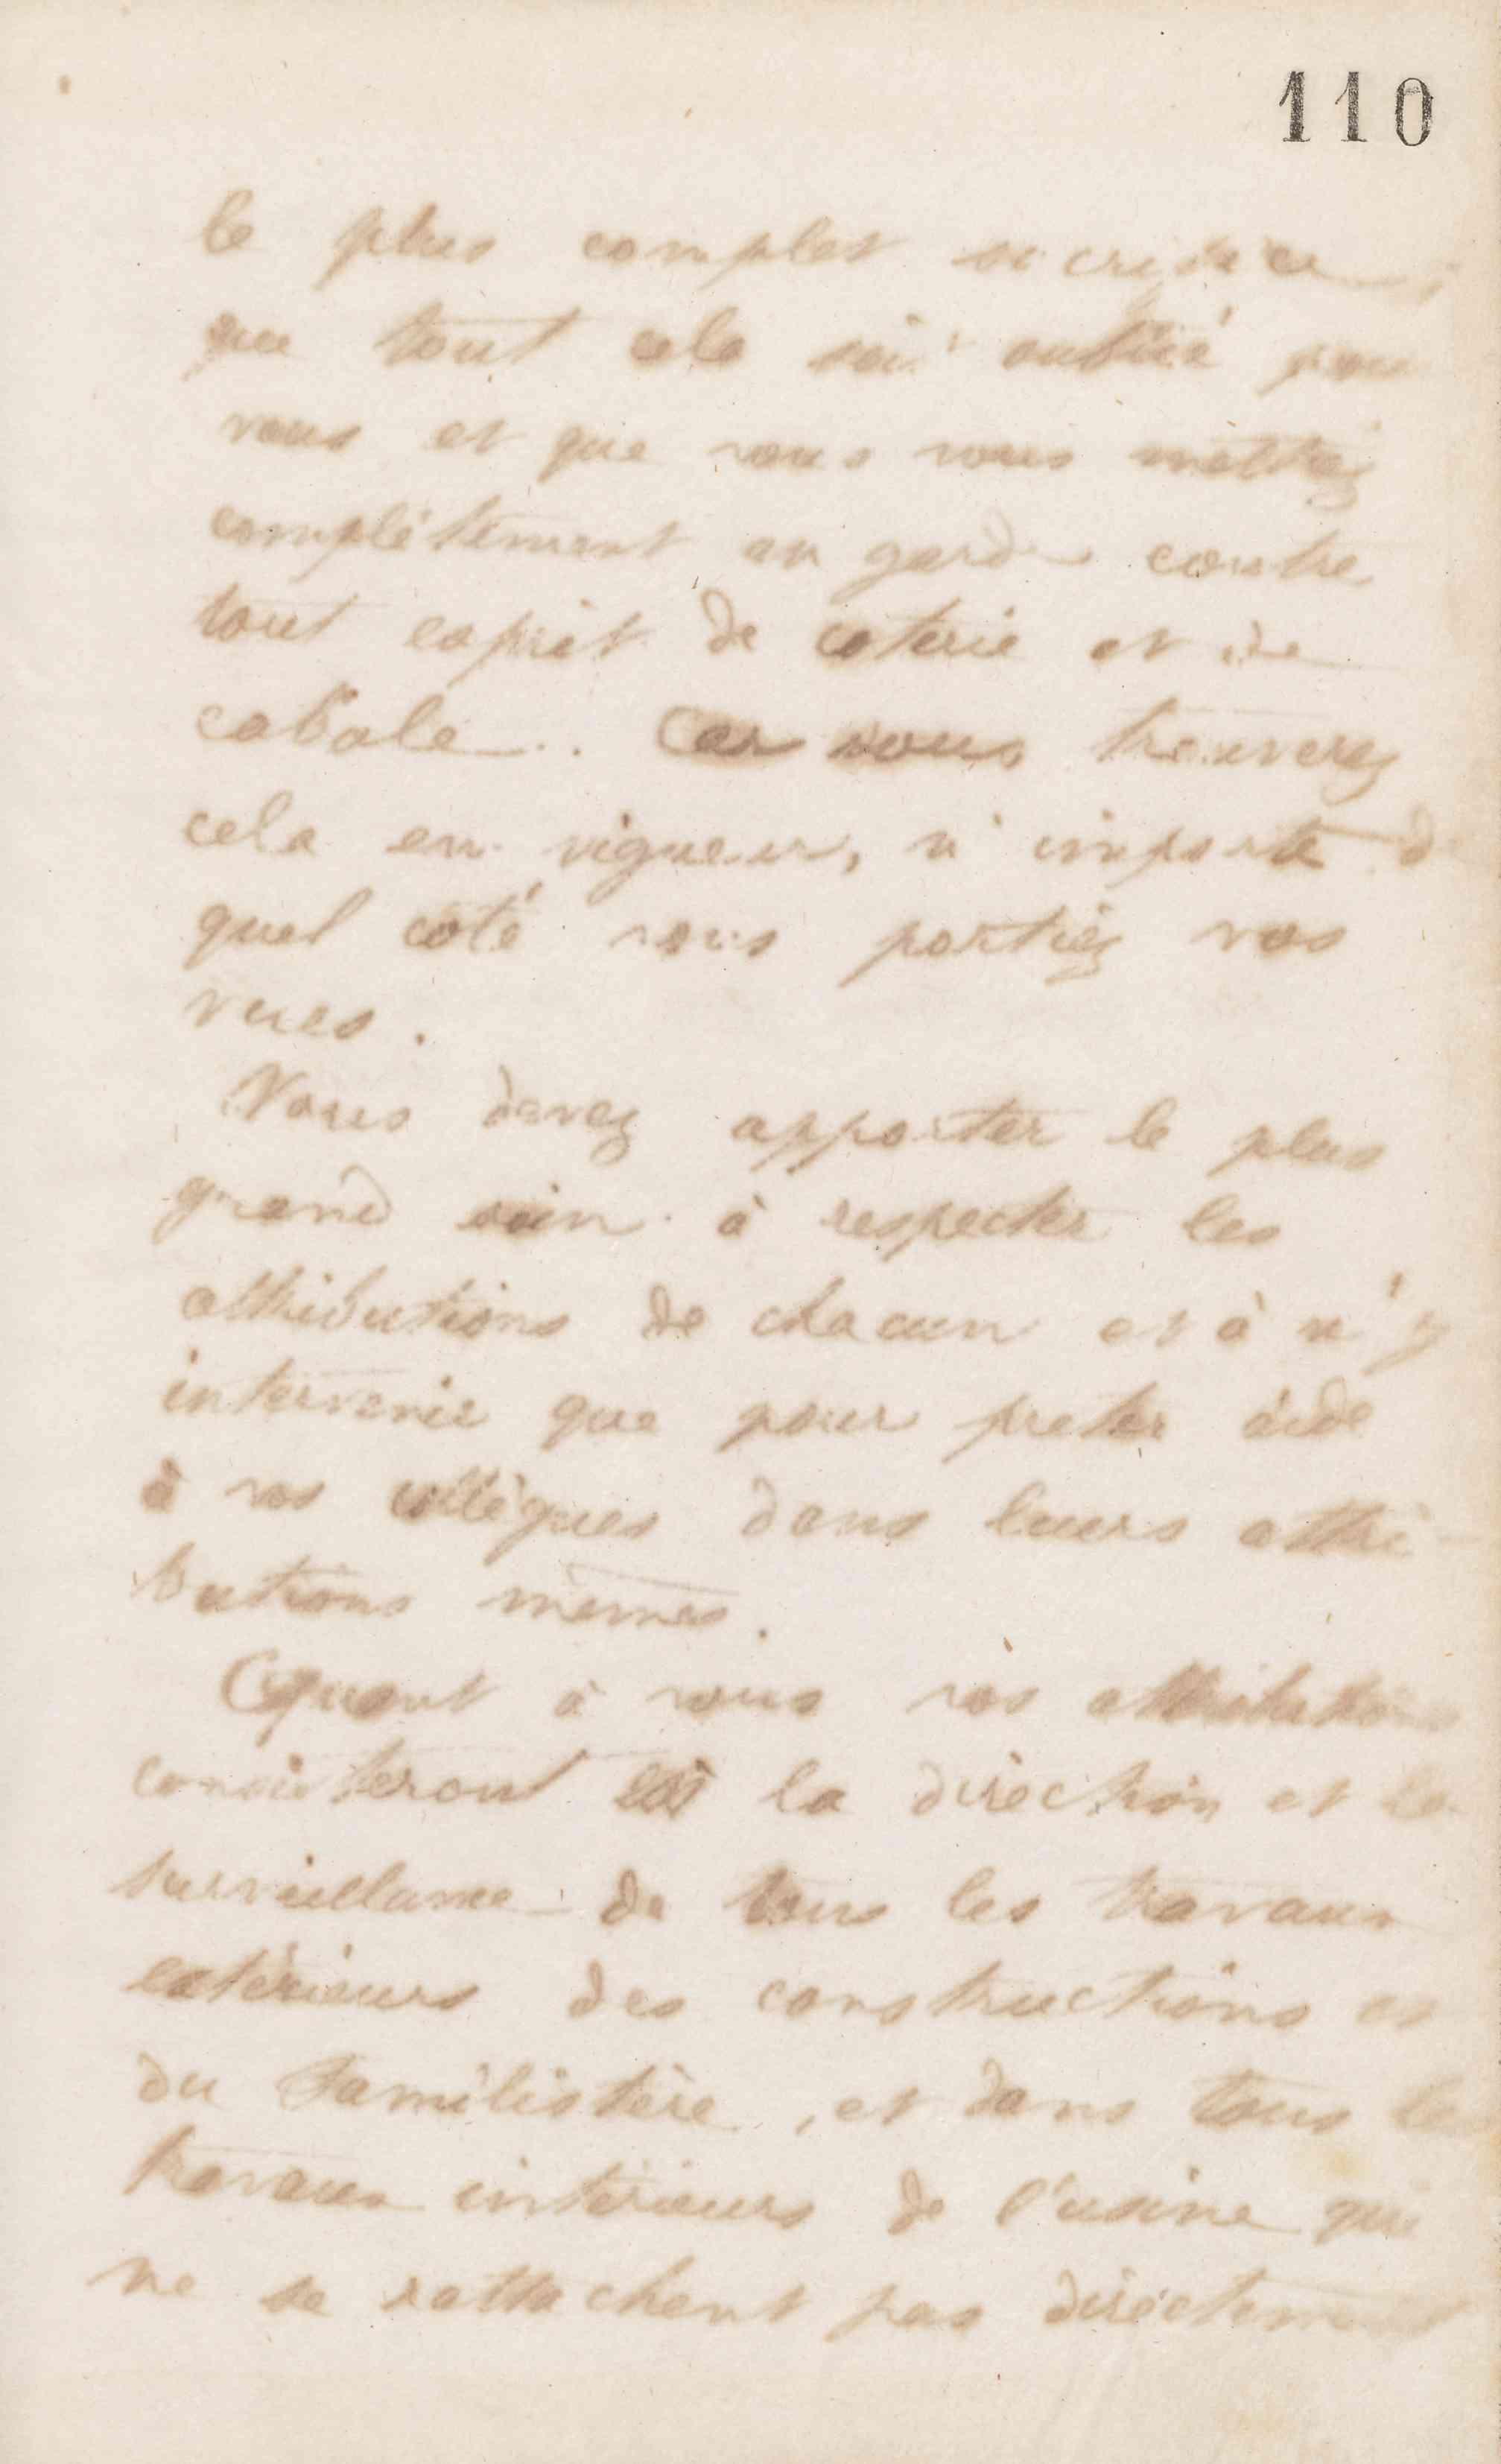 110
le plus complet sacrifice,
que tout cela soit oublié pour
vous et que vous vous mettiez
complètement en garde contre
tout esprit de coterie et de
cabale. Car vous trouverez
cela en vigueur, n'importe de
quel côté vous portiez vos
vues.
Vous devez apporter le plus
grand soin à respecter les
attributions de chacun et à n'y
intervenir que pour preter aide
à vos collègues dans leurs attri-
butions mêmes.
Quant à vous vos attributions
consisteront la direction et la
surveillance de tous les travaux
extérieurs des constructions et
du Familistère, et dans tous les
travaux intérieurs de l'usine qui
ne se rattachent pas directement